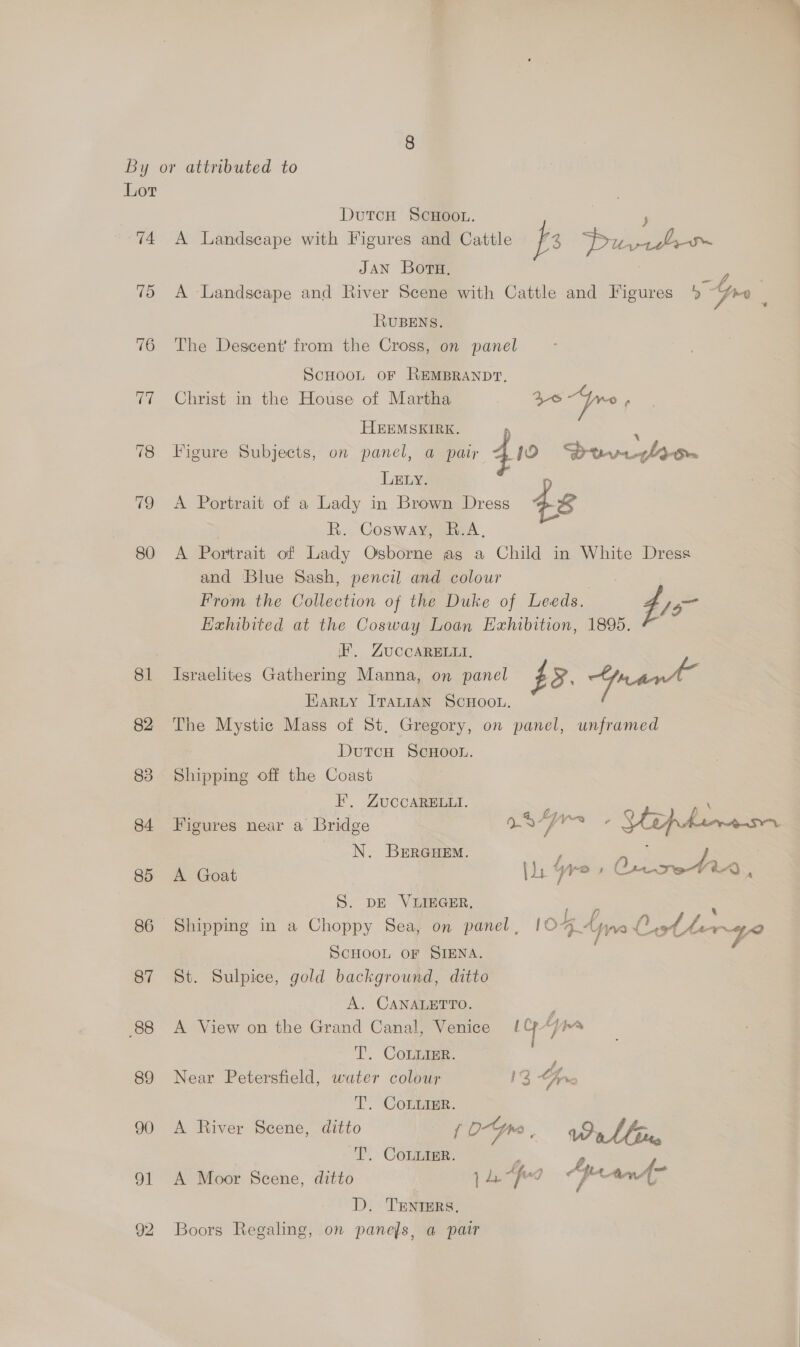 8
By or attributed to
Lot
DUTCH SCHOOL.
74 A Landscape with Figures and Cattle £3
JAN BOTH,
75 A Landscape and River Scene with Cattle and Figures 5 Gns
RUBENS.
76 The Descent from the Cross, on panel
SCHOOL OF REMBRANDT,
77 Christ in the House of Martha Gns
HEEMSKIRK.
78 Figure Subjects, on panel, a pair £10
LELY.
79 A Portrait of a Lady in Brown Dress £8
R. COSWAY, R.A,
80 A Portrait of Lady Osborne as a Child in White Dress
and Blue Sash, pencil and colour
From the Collection of the Duke of Leeds. £15
Exhibited at the Cosway Loan Exhibition, 1895.
F. ZUCCARELLI,
81 Israelites Gathering Manna, on panel £8. Grant
EARLY ITALIAN SCHOOL.
82 The Mystic Mass of St, Gregory, on panel, unframed
DUTCH SCHOOL.
83 Shipping off the Coast
F. ZUCCARELLI.
84 Figures near a Bridge Gns
N. BERGHEM.
85 A Goat Gns
S. DE VLIEGER,
86 Shipping in a Choppy Sea, on panel, Gns Collings
SCHOOL OF SIENA.
87 St. Sulpice, gold background, ditto
A. CANALETTO.
88 A View on the Grand Canal, Venice Gns
T. COLLIER.
89 Near Petersfield, water colour 13 Gns
T. COLLIER.
90 A River Scene, ditto 10 Gns.
T. COLLIER.
91 A Moor Scene, ditto Gns Grant
D. TENIERS,
92 Boors Regaling, on panels, a pair